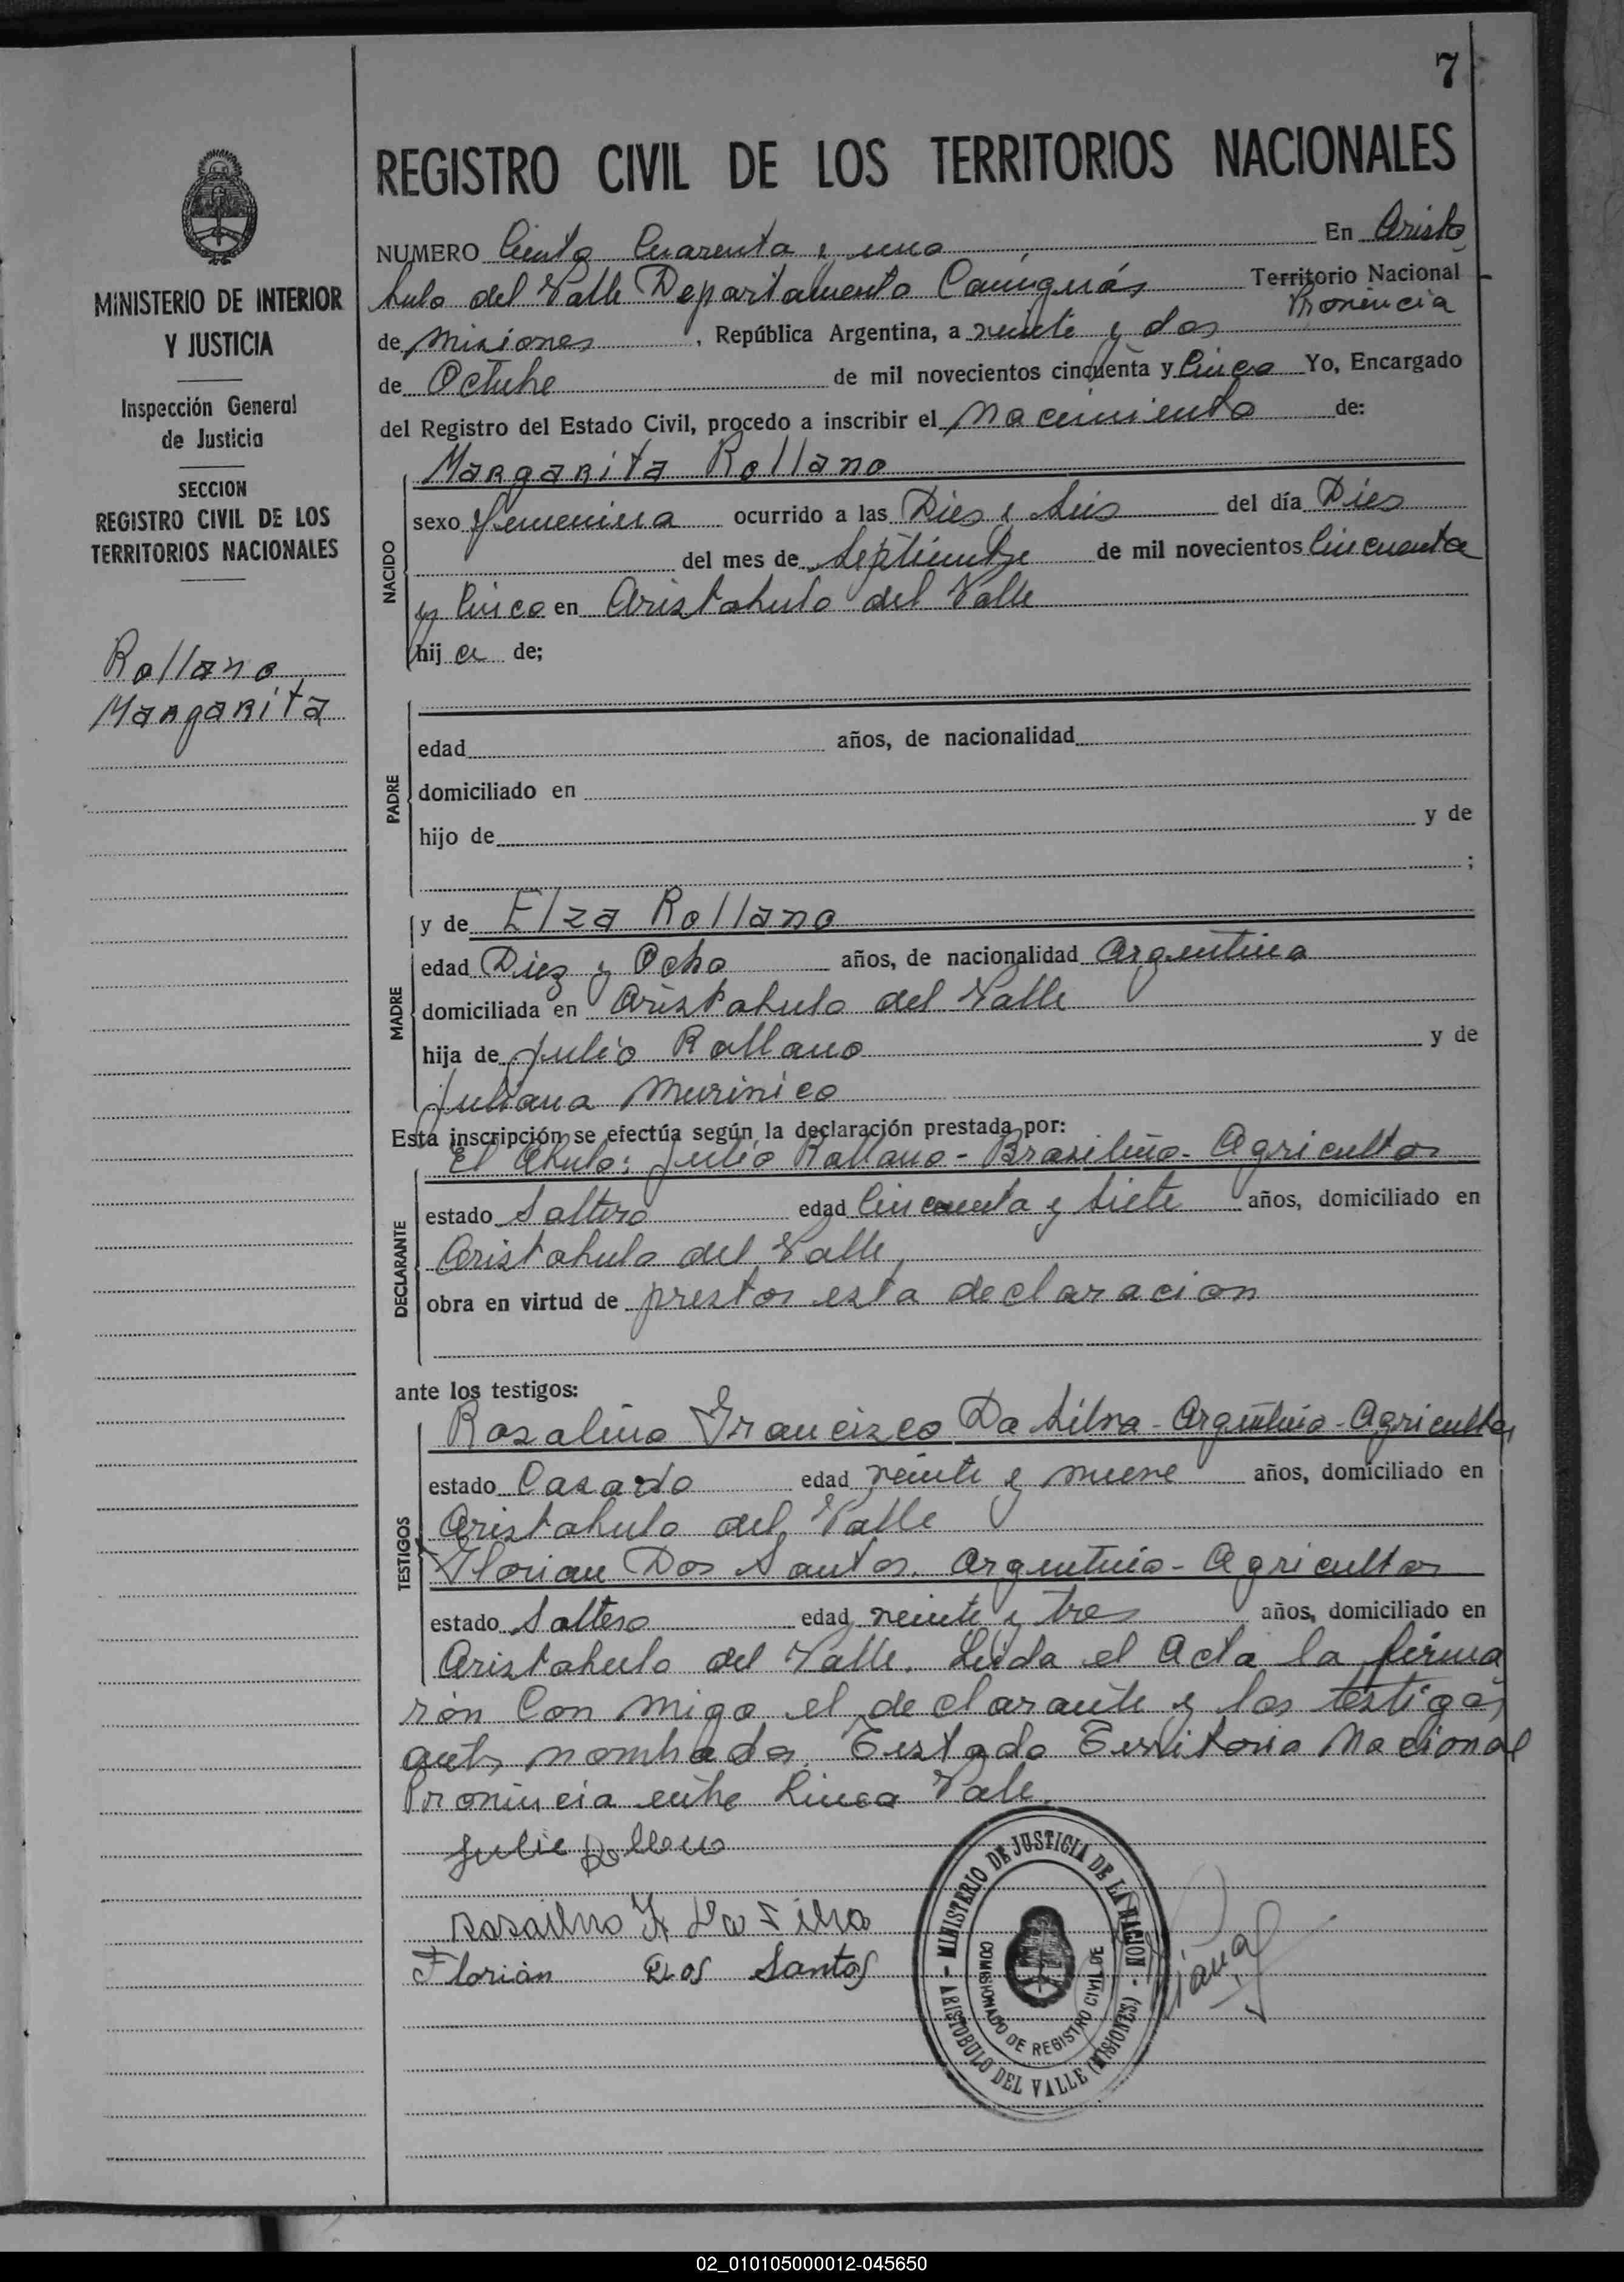 7
REGISTRO CIVIL DE LOS TERRITORIOS NACIONALES
MINISTERIO DE INTERIOR
Y JUSTICIA
Inspección General
de Justicia
SECCION
REGISTRO CIVIL DE LOS
TERRITORIOS NACIONALES
Rollano
Margarita
NUMERO Ciento Cuarenta y uno En Aristo
bulo del Valle Departamento Cainguás Territorio Nacional
Provincia
de Misiones, República Argentina, a veinte y dos
de Octubre de mil novecientos cincuenta y Cinco Yo, Encargado
del Registro del Estado Civil, procedo a inscribir el Nacimiento de:
NACIDO
Margarita Rollano
sexo femenina ocurrido a las Dies y Seis del día Dies
del mes de Septiembre de mil novecientos Cincuenta
y Cinco en Aristobulo del Valle
hij a de;
PADRE
edad años, de nacionalidad
domiciliado en
hijo de y de
;
MADRE
y de Elza Rollano
edad Diez y Ocho años, de nacionalidad Argentina
domiciliada en Aristobulo del Valle
hija de Julio Rollano y de
Juliana Murinico
Esta inscripción se efectúa según la declaración prestada por:
DECLARANTE
El Abulo: Julio Rollano - Brasileño - Agricultor
estado Soltero edad Cincuenta y Siete años, domiciliado en
Aristobulo del Valle
obra en virtud de prestar esta declaracion
ante los testigos:
TESTIGOS
Rosalino Francisco Da Silva - Argentino - Agricultor
estado Casado edad veinte y nueve años, domiciliado en
Aristobulo del Valle
Florian Dos Santos. Argentino - Agricultor
estado Soltero edad veinte y tres años, domiciliado en
Aristobulo del Valle. Leida el Acta la firma
ron Con migo el declarante y los testigos
nombrados. Testado Territorio Nacional
Provincia entre Linea Vale.
Julio Rollano
Rosalino F Da Silva
Florián Dos Santos
MINISTERIO DE JUSTICIA DE LA NACION
COMISIONADO DE REGISTRO CIVIL DE
ARISTOBULO DEL VALLE (MISIONES)
02_010105000012-045650